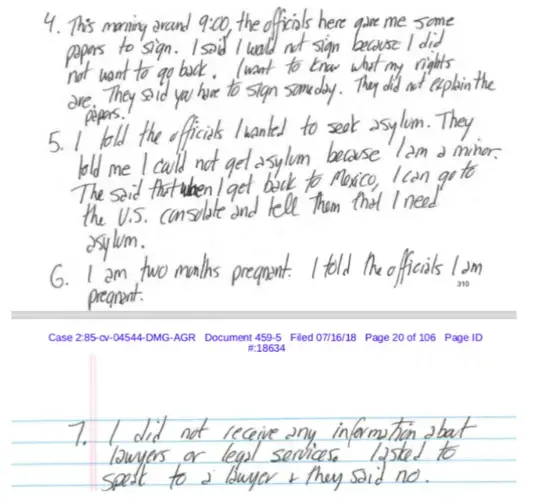 4. This morning around 9:00, the officials here gave me some
papers to sign. I said I would not sign because I did
not want to go back. I want to know what my rights
are. They said you have to sign someday. They did not explain the
papers.
5. I told the officials I wanted to seek asylum. They
told me I could not get asylum because I am a minor.
The said that when I get back to Mexico, I can go to
the U.S. consulate and tell them that I need
asylum.
6. I am two months pregnant. I told the officials I am
pregnant.
310
Case 2:85-cv-04544-DMG-AGR Document 459-5 Filed 07/16/18 Page 20 of 106 Page ID
#:18634
7. I did not receive any information about
lawyers or legal services. I asked to
speak to a lawyer & they said no.